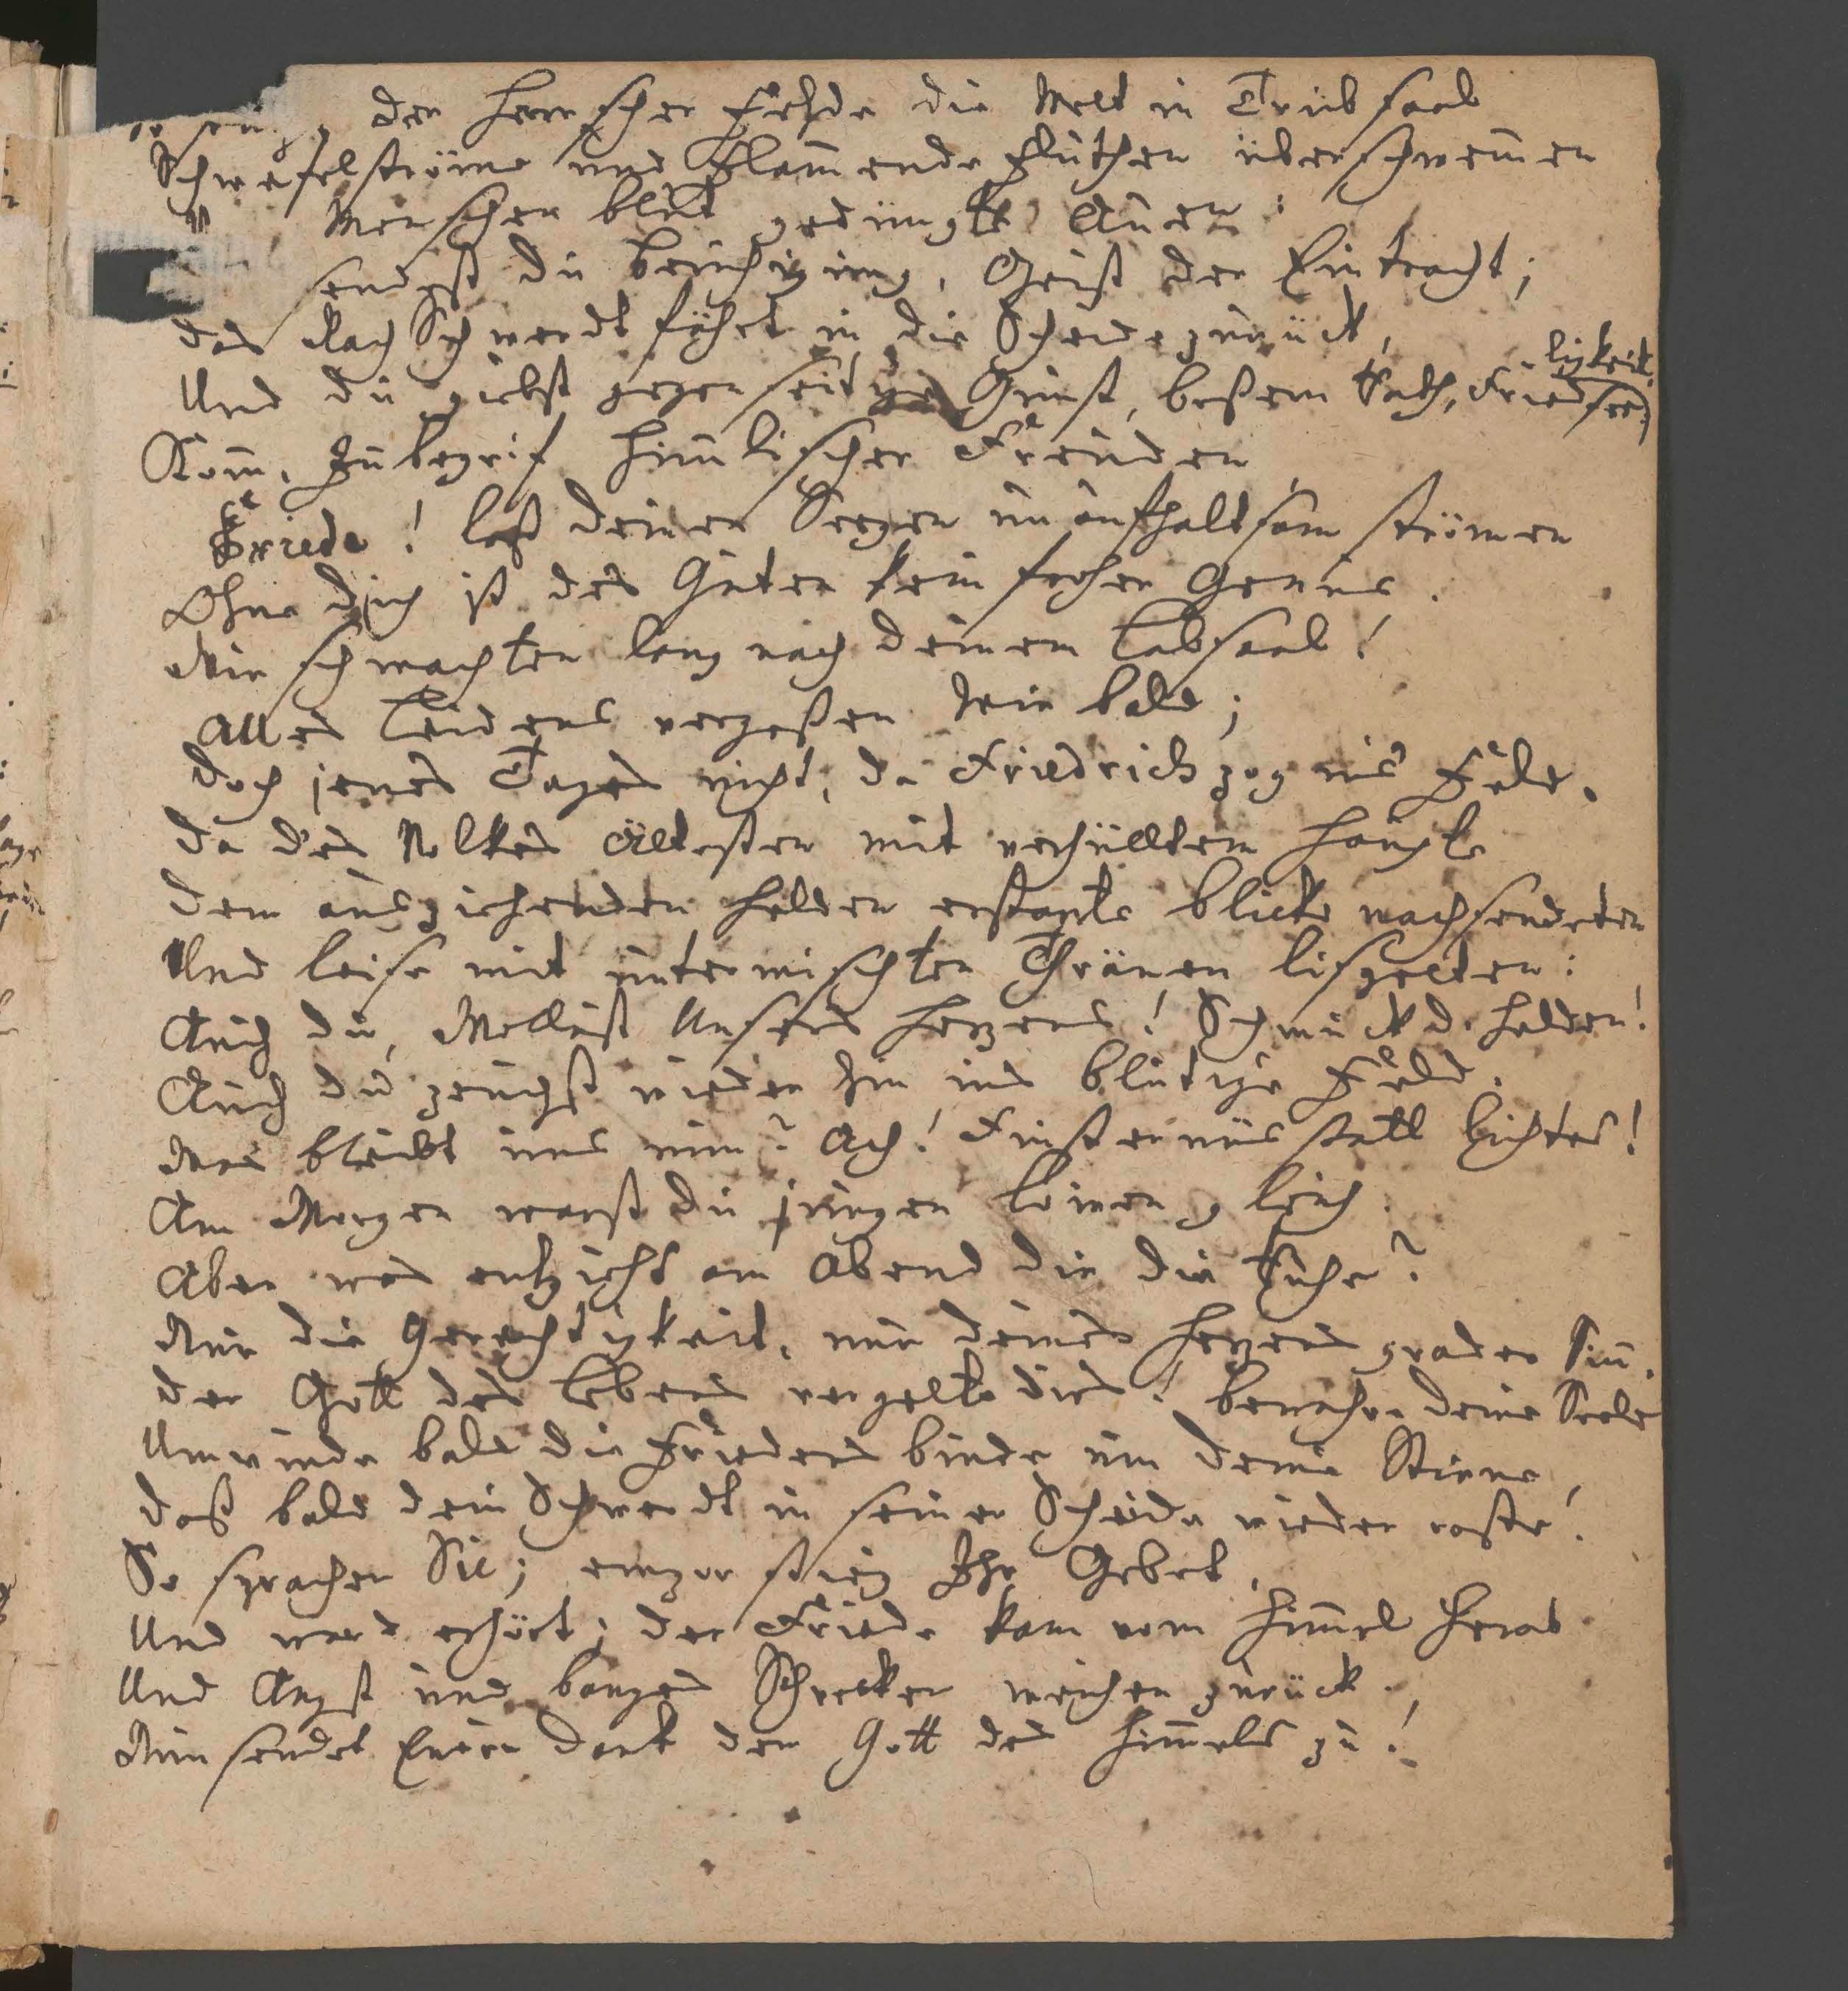 der Herrscher Fehde die Welt in Trübsaal
Schwefelströme und flam̄ende Fluthen überschwem̄en
Menschen blut gedüngte Auen:
sendest du Beruhigung, Geist der Eintracht;
das Rach Schwerdt fährt in die Scheide zurück,
Und du giebst gegenseitige Gunst, beßern Rath, Friedsee-
ligkeit.
Kom̄, Inbegrif him̄lischer Freuden
Friede! laß deinen Seegen unaufhaltsam strömen
Ohne dich ist des Guten kein froher Genus.
Wir schmachten lang nach deinem Labsaal!
Alles Leidens vergeßen wir bald;
Doch jenes Tages nicht, da Friedrich zog ins Feld.
Da des Volkes Ältesten mit verhülltem Haupte
Dem ausziehenden Helden erstarrte Blicke nachsendeten
Und leise mit untermischten Thränen lispelten:
Auch du, Wollust Unsers Herzens! Schmuck d. Helden!
Auch du zeuchst wieder hin ins blutige Feld.
Was bleibt uns nun? Ach! Finsternüs statt Lichtes!
Am Morgen warst du jungen Löwen gleich.
Aber was entzieht am Abend dir die Ruhe?
Nur die Gerechtigkeit, nur deines Herzens grader Sin̄.
Der Gott des Lebens vergelte dies! bewahre deine Seele
Umwinde bald die Friedens binde um deine Stirne,
Daß bald dein Schwerdt in seiner Scheide wieder raste!
So sprachen Sie; empor stieg Ihr Gebet,
Und ward erhört; der Friede kam vom Him̄el herab
Und Angst und banges Schrecken weichen zurück.
Nun sendet Euren Dank dem Gott des Him̄els zu!